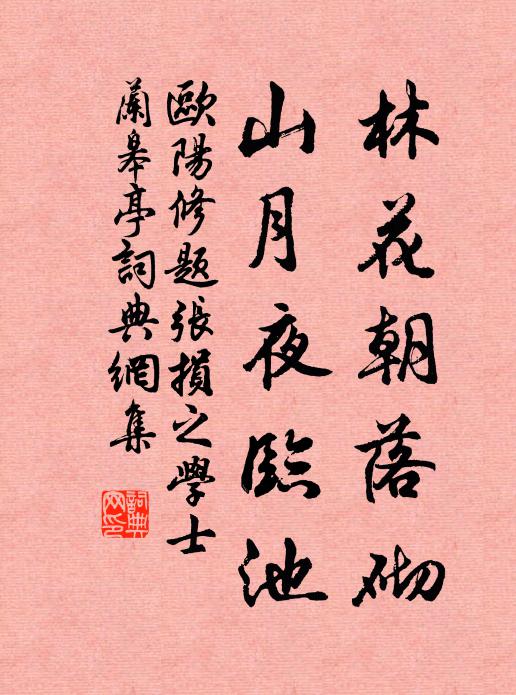 林花朝落砌
山月夜臨池
歐陽修題張損之學士
蘭皋亭詞典網集
詞典
网印